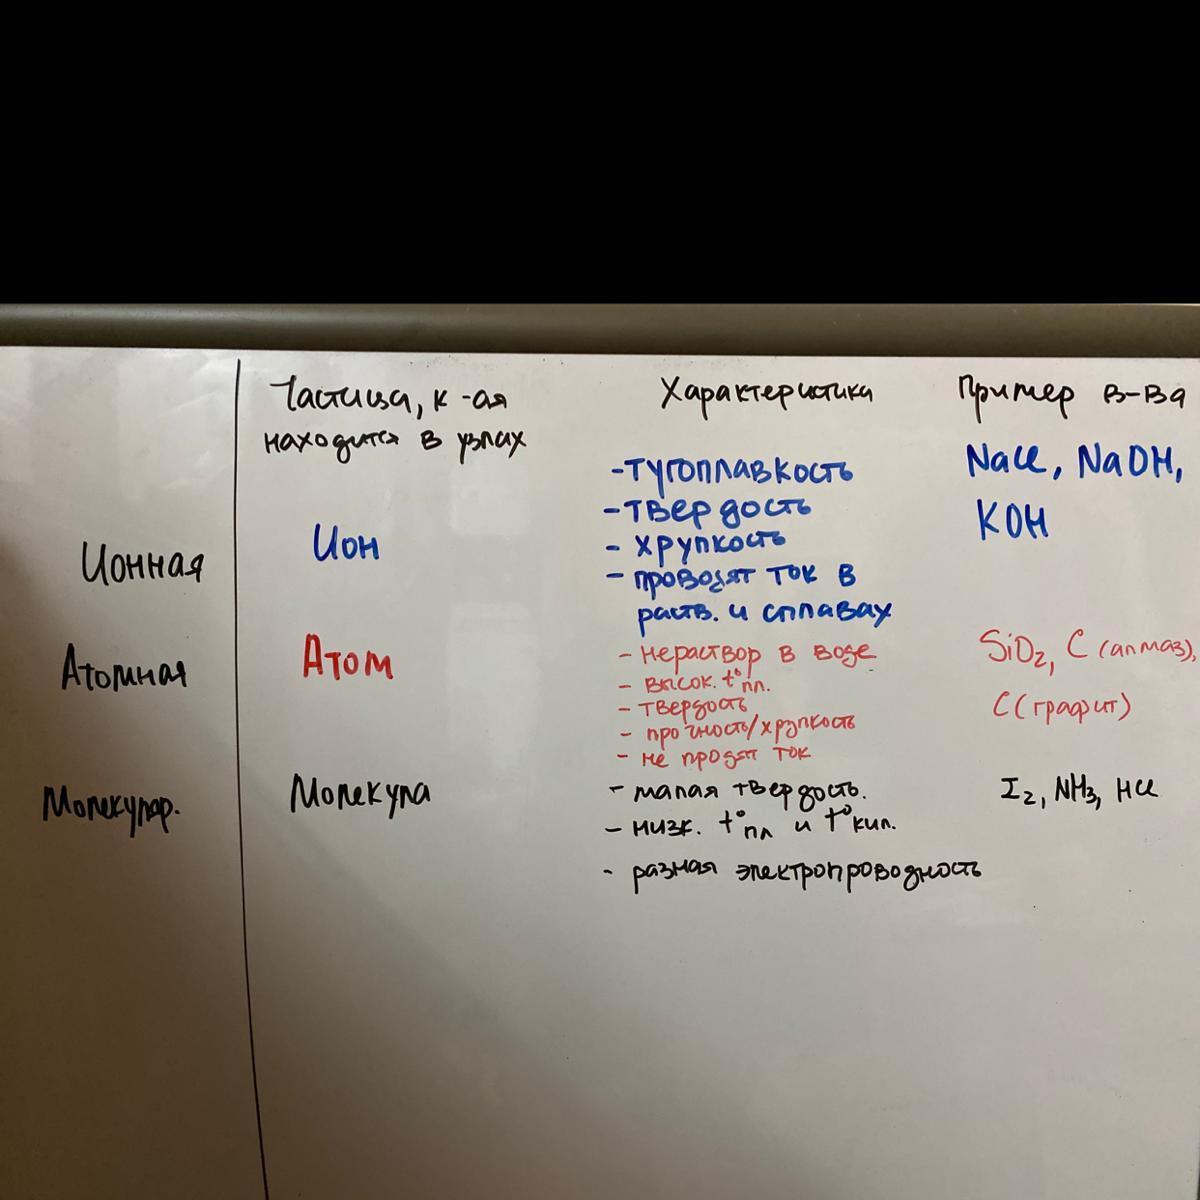 Частица, к-ая
находится в узлах
Характеристики
Пример в-ва
Ионная
Ион
-тугоплавкость
-твердость
- хрупкость
- проводят ток в
раств. и сплавах
NaCl, NaOH,
KOH
Атомная
Атом
- нераствор в воде
- высок. t°пл.
- твердость
- прочность/хрупкость
- не продят ток
SiO2, C (алмаз),
C(графит)
Молекуляр.
Молекула
- малая твердость.
- низк. t°пл и t°кип.
- разная электропроводность
I2, NH3, HCl